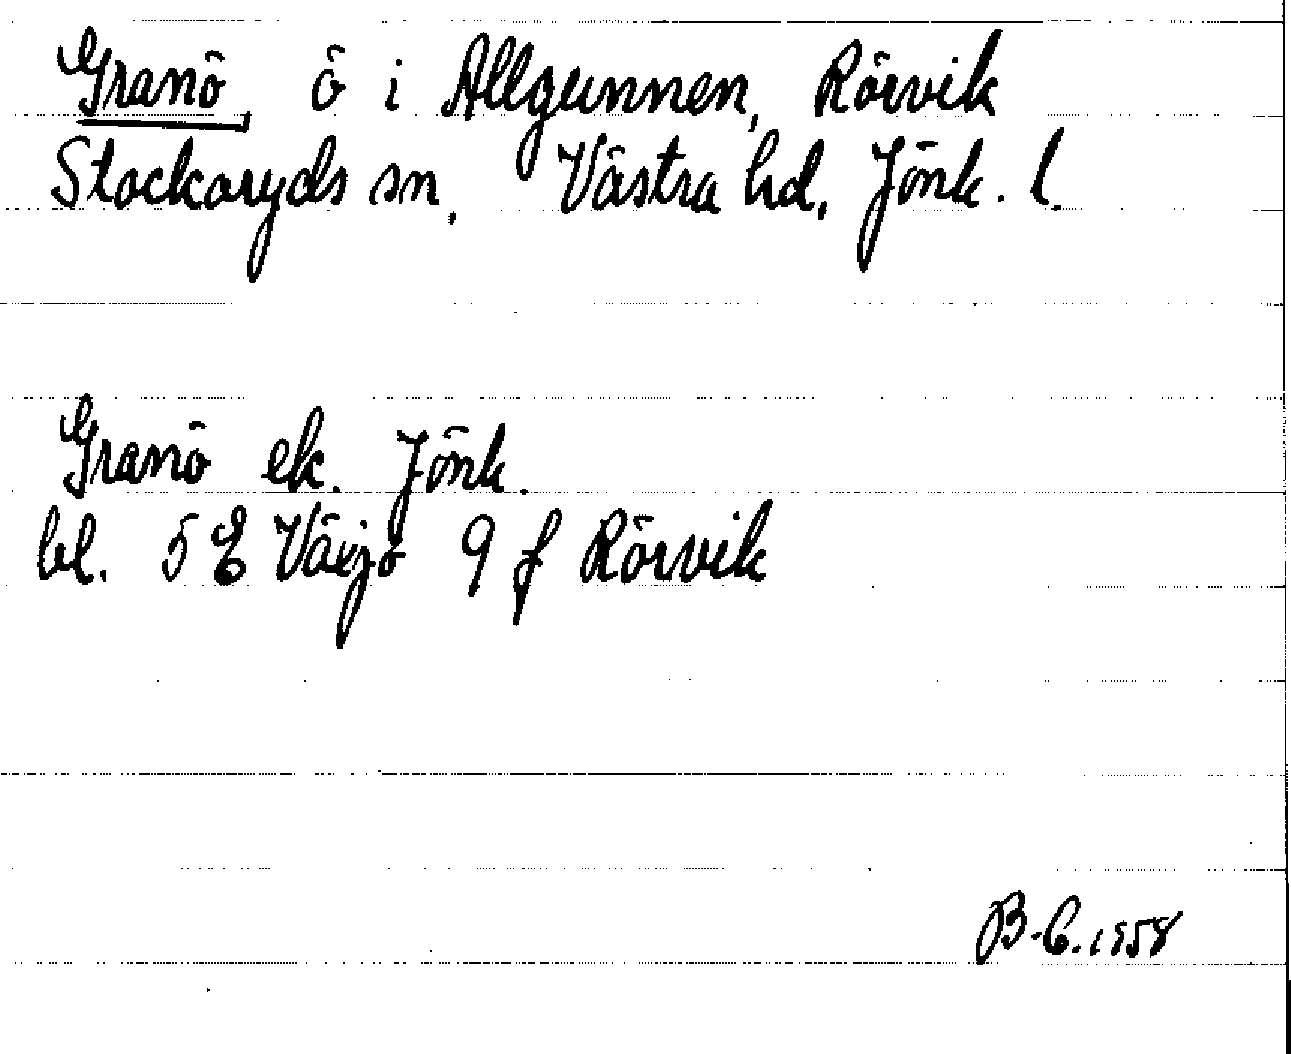 Granö, ö i Allgunnen, Rörvik
Stockaryds sn, Västra hd, Jönk. l.
Granö ek. Jönk.
bl. 5 E Växjö 9 f Rörvik
B-C. 1958